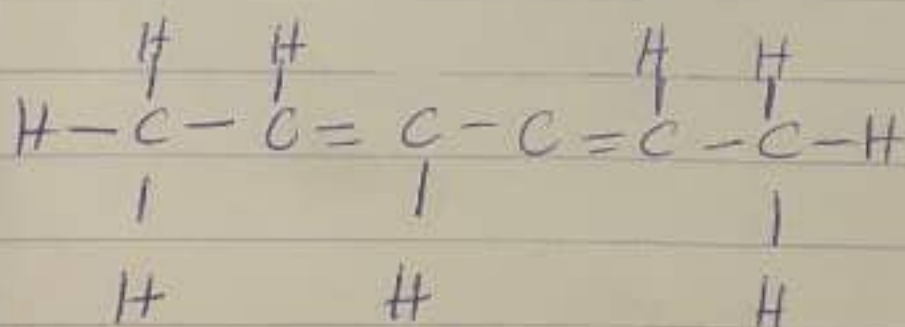 H H H H
H — C — C = C - C = C — C — H
H H H